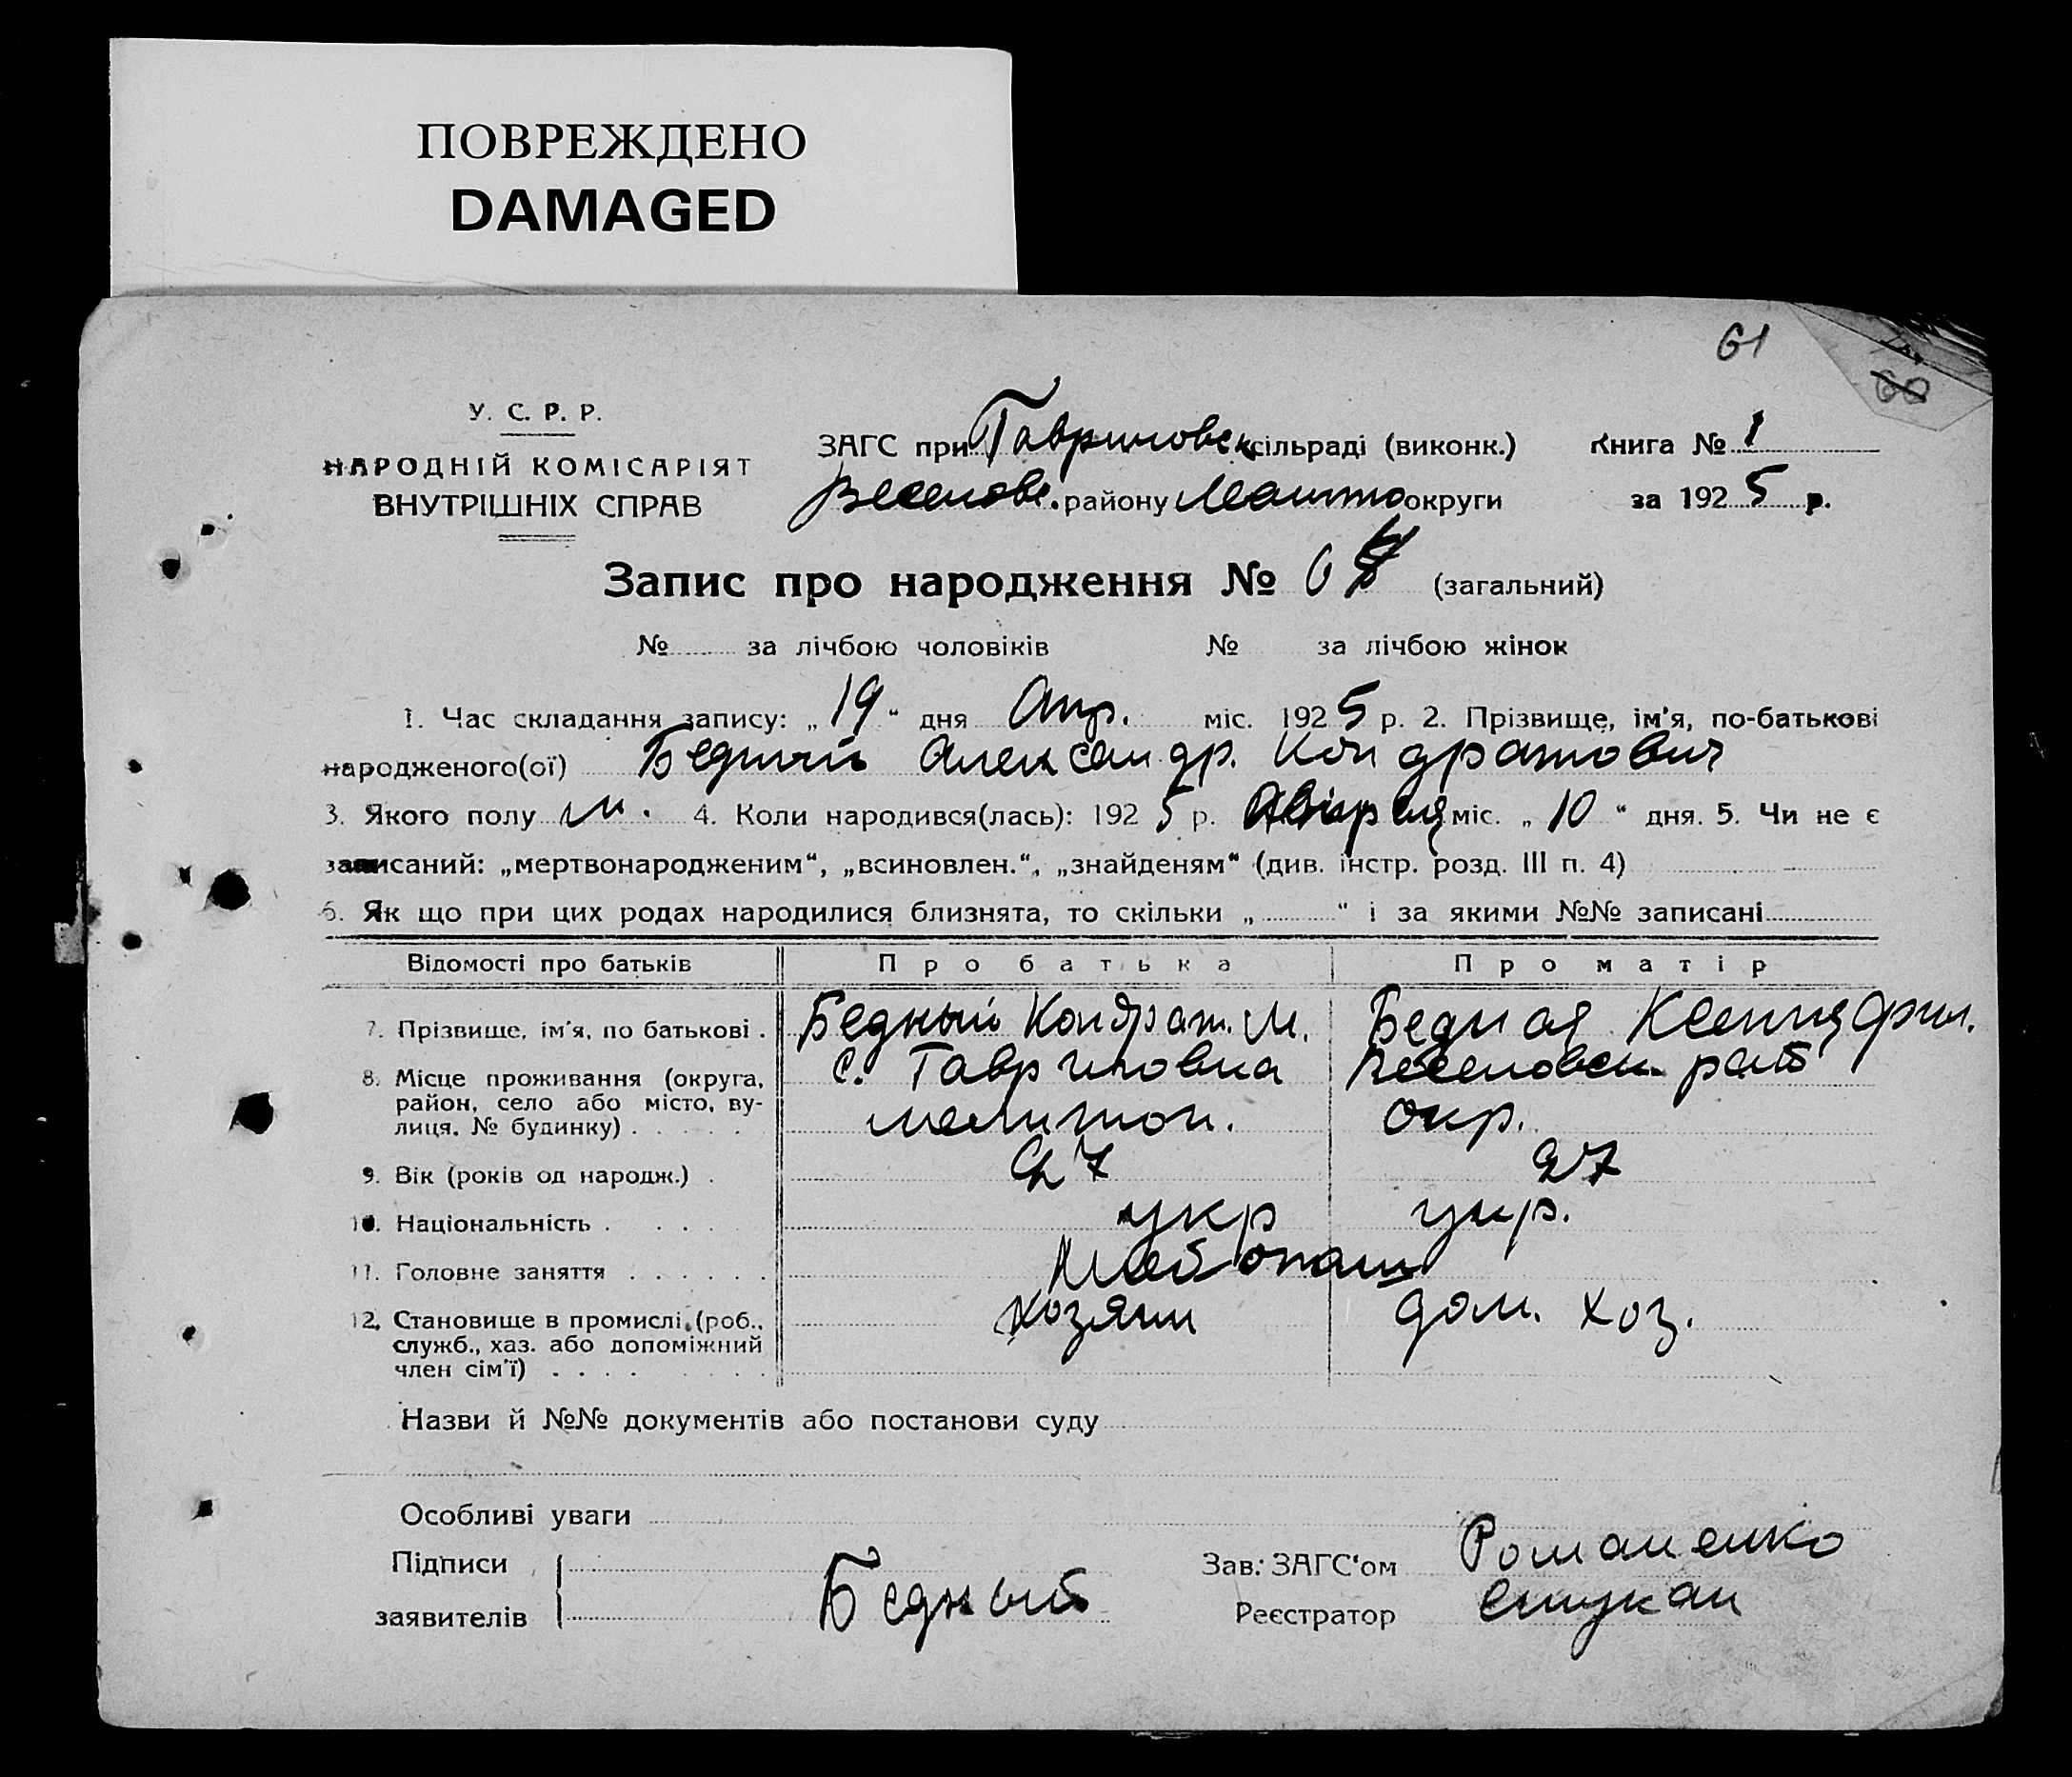 ПОВРЕЖДЕНО
DAMAGED
61
60
У. С. Р. Р.
НАРОДНІЙ КОМІСАРІЯТ
ВНУТРІШНІХ СПРАВ
ЗАГС при Гавриловск сільраді (виконк.) Книга № 1
Веселовс. району Мелито округи за 1925 р.
Запис про народження № 6 (загальний)
№ за лічбою чоловіків № за лічбою жінок
1. Час складання запису: „19“ дня Апр. міс. 1925 р. 2. Прізвище, ім'я, по-батькові
народженого(ої) Бедный Александр. Кондратович
3. Якого полу м. 4. Коли народився(лась): 1925 р. Апреля міс. „10“ дня. 5. Чи не є
записаний: „мертвонародженим“, „всиновлен.“, „знайденям“ (див. інстр. розд. III п. 4)
6. Як що при цих родах народилися близнята, то скільки „ “ і за якими №№ записані
Відомості про батьків Про батька Про матір
7. Прізвище, ім'я, по батькові . Бедный Кондрат. М. Бедная Ксения Фил.
8. Місце проживання (округа, с. Гавриловка Веселовск. рай
район, село або місто, ву-
лиця, № будинку) . мелитоп. окр.
9. Вік (років од народж.) . 27 27
10. Національність . укр укр.
11. Головне заняття . Хлебопаш
12. Становище в промислі (роб., хозяин дом. хоз.
служб., хаз. або допоміжний
член сім'ї) .
Назви й №№ документів або постанови суду
Особливі уваги
Підписи Зав. ЗАГС'ом Романенко
заявителів Бедный Реєстратор